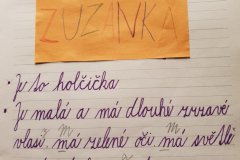 ZUZANKA
• Je to holčička
• Je malá a má dlouhé rzravé
vlasy. má zelené oči. má světlé